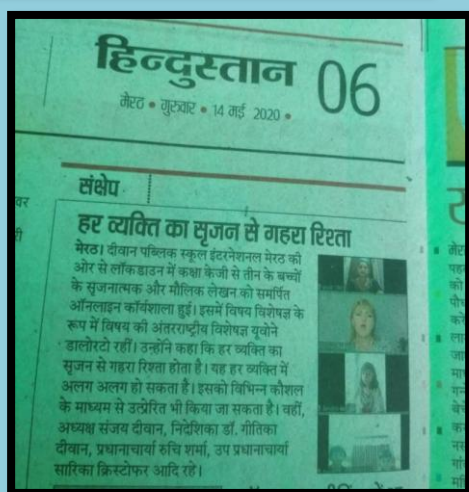 हिन्दुस्तान 06
मेरठ • गुरुवार • 14 मई 2020 •
संक्षेप
हर व्यक्ति का सृजन से गहरा रिश्ता
मेरठ। दीवान पब्लिक स्कूल इंटरनेशनल मेरठ की
ओर से लॉकडाउन में कक्षा केजी से तीन के बच्चों
के सृजनात्मक और मौलिक लेखन को समर्पित
ऑनलाइन कॉर्यशाला हुई। इसमें विषय विशेषज्ञ के
रूप में विषय की अंतरराष्ट्रीय विशेषज्ञ यूवोने
डालोरटो रहीं। उन्होंने कहा कि हर व्यक्ति का
सृजन से गहरा रिश्ता होता है। यह हर व्यक्ति में
अलग अलग हो सकता है। इसको विभिन्न कौशल
के माध्यम से उत्प्रेरित भी किया जा सकता है। वहीं,
अध्यक्ष संजय दीवान, निदेशिका डॉ. गीतिका
दीवान, प्रधानाचार्या रुचि शर्मा, उप प्रधानाचार्या
सारिका क्रिस्टोफर आदि रहे।